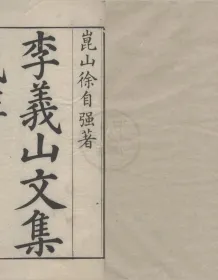 崑山徐自强著
李義山文集